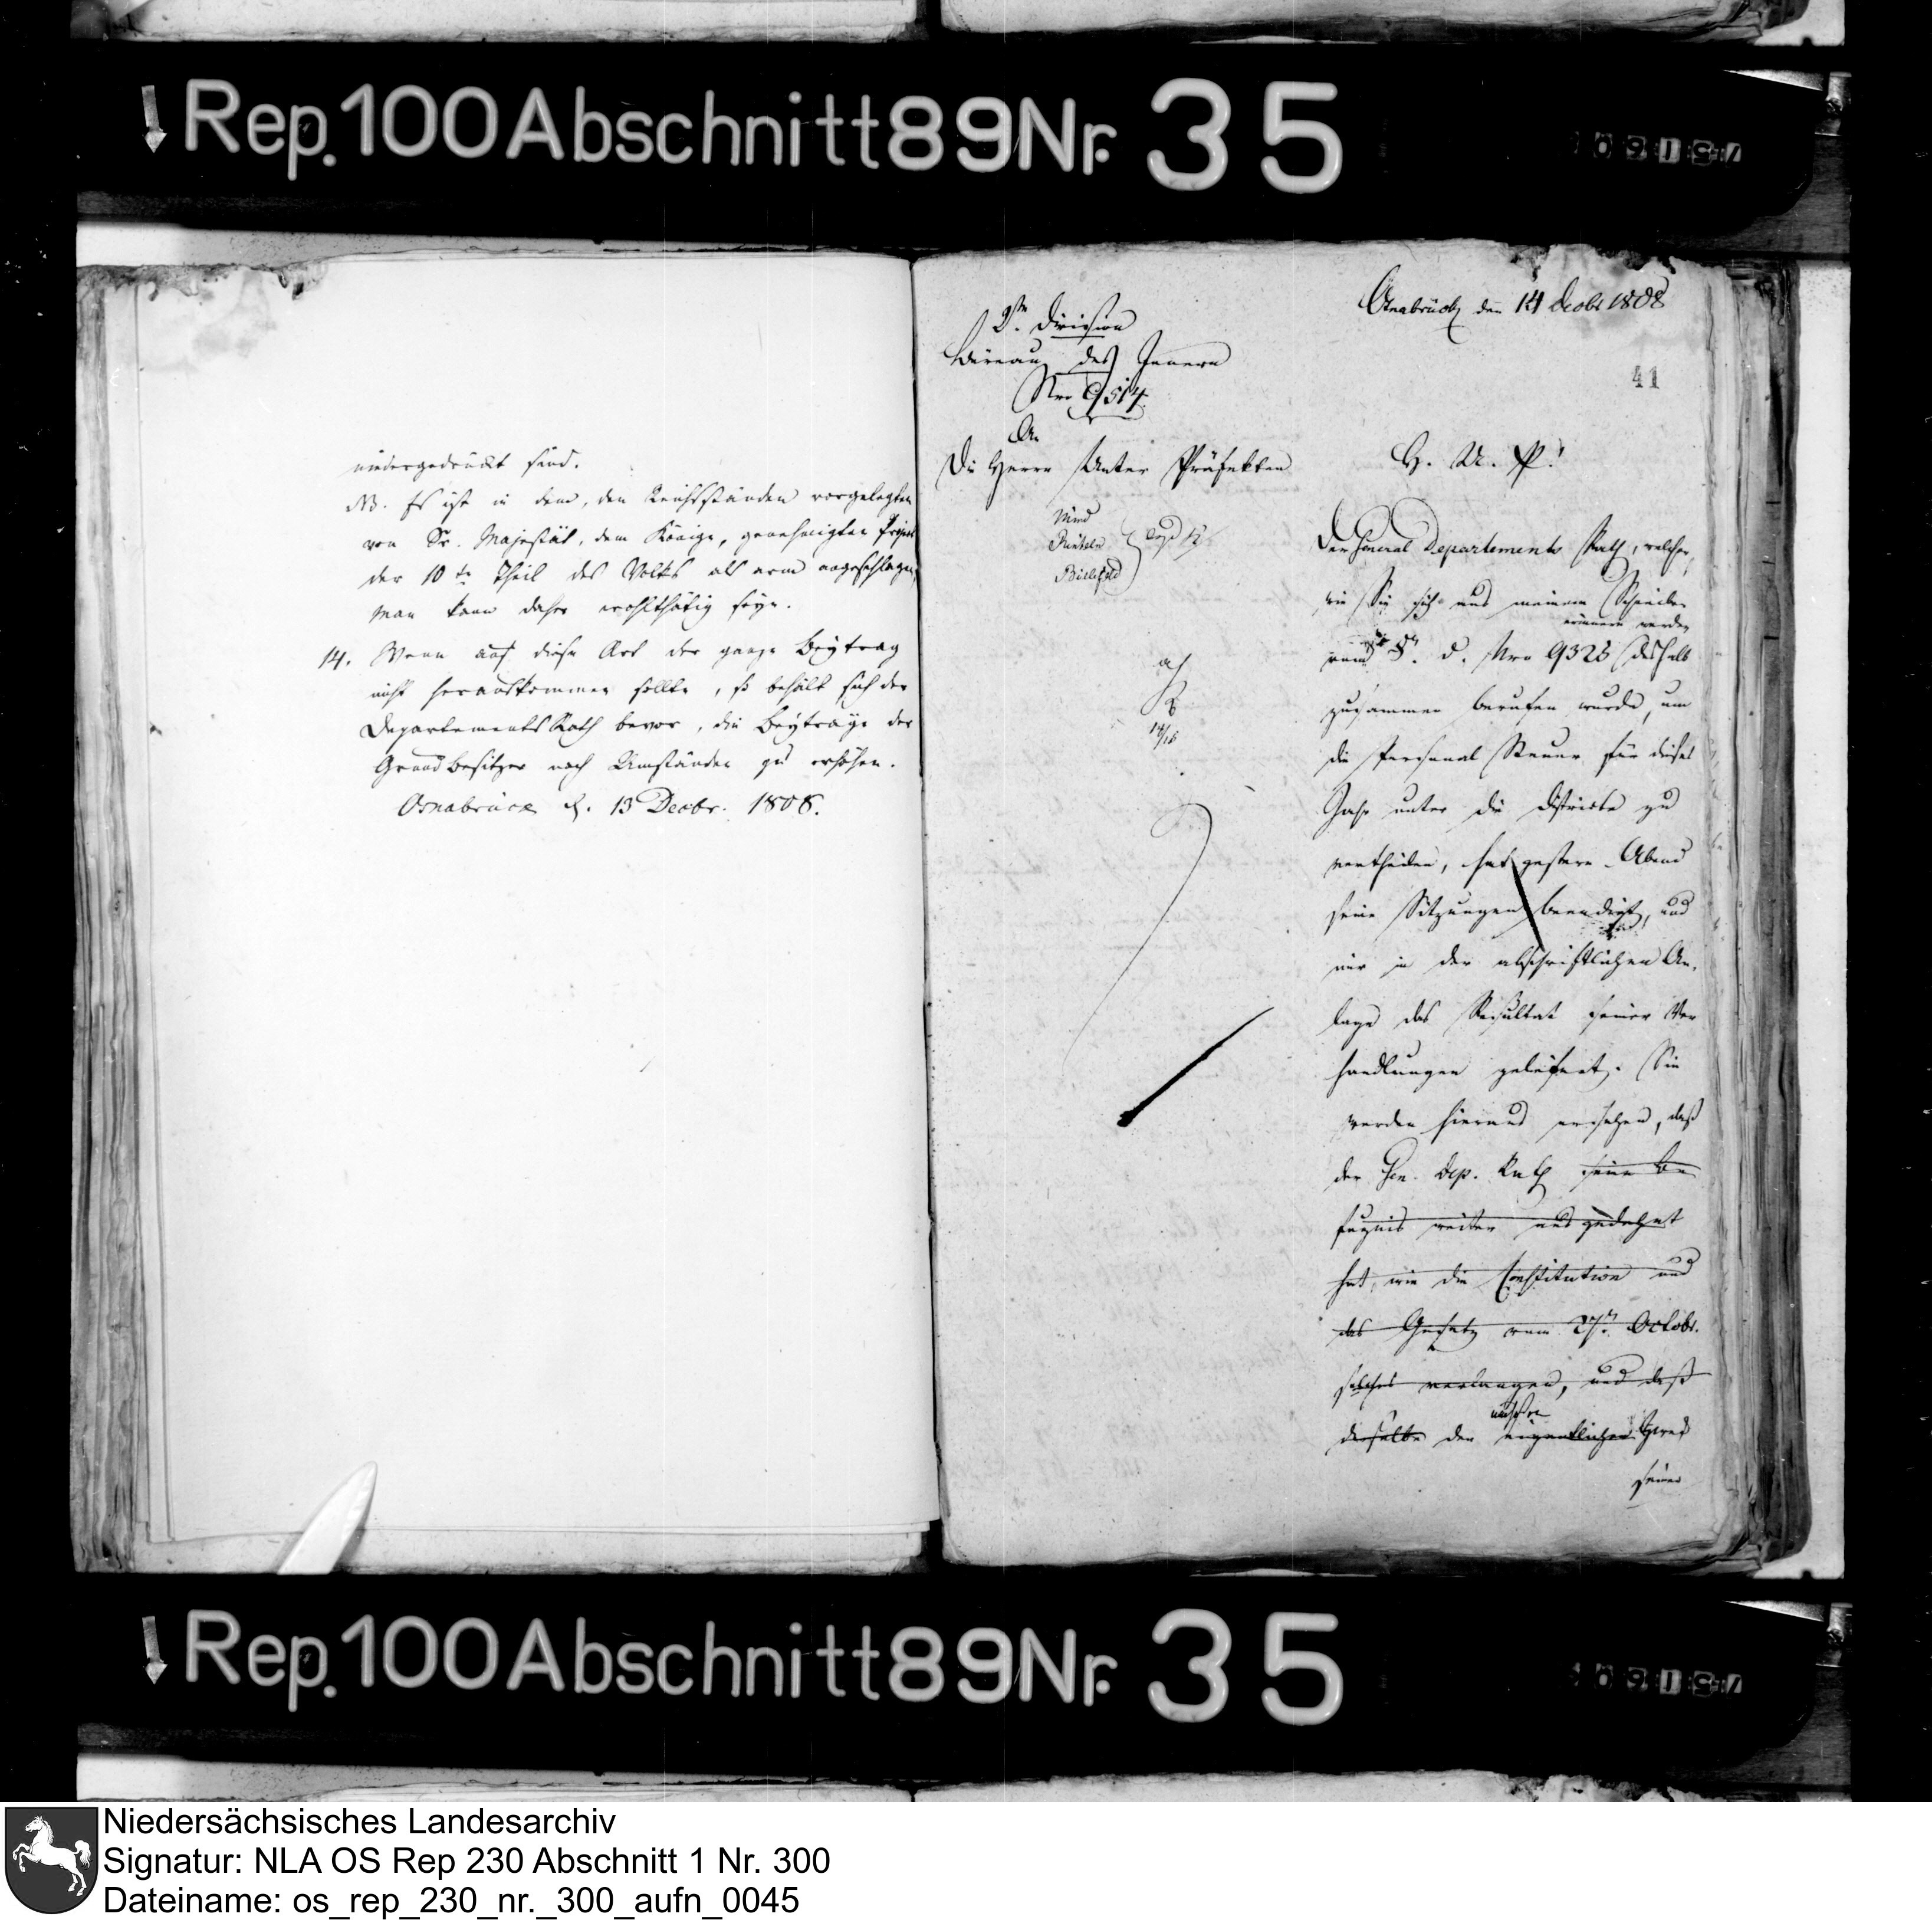 Rep. 100 Abschnitt 89 Nr. 35
niedergedrückt sind.
NB. Es ist in dem, den Reichsständen vorgelegten
von Sr. Majestät, dem Könige, genehmigten Project
der 10te Theil des Volks als arm angeschlagen,
man kann daher wohlthätig seyn.
14. Wenn auf diese Art der ganze Beytrag
nicht herauskommen sollte, so behält sich der
Departements Rath bevor, die Beyträge der
Grundbesitzer nach Umständen zu erhöhen.
Osnabrück d. 13 Decbr. 1808.
Osnabrück den 14 Decbr 1808
2te Division
Büreau des Innern
Nro 9514
41
An
Die Herrn Unter Präfekten
Mind
Rinteln
Bielefeld
H. U. P!
Der General Departements Rath, welcher,
wie Sie sich aus meinem Schreiben
erinnern werden
vom 8n. d. Nro 9328 deshalb
zusammen berufen wurde, um
die Personal Steuer für dieses
Jahr unter die Districte zu
vertheilen, hat gestern Abend
seine Sitzungen beendigt, und
mir in der abschriftlichen An-
lage das Resultat seiner Ver
handlungen geliefert. Sie
werden hieraus ersehen, daß
der Gen. Dep. Rath seine Be
fugnis weiter ausgedehnt
hat, wie die Constitution und
das Gesetz vom 27n. Octobr.
solches verlangen, und daß
derselbe den eigentlichen Zweck
seiner
Rep. 100 Abschnitt 89 Nr. 35
Niedersächsisches Landesarchiv
Signatur: NLA OS Rep 230 Abschnitt 1 Nr. 300
Dateiname: os_rep_230_nr._300_aufn_0045